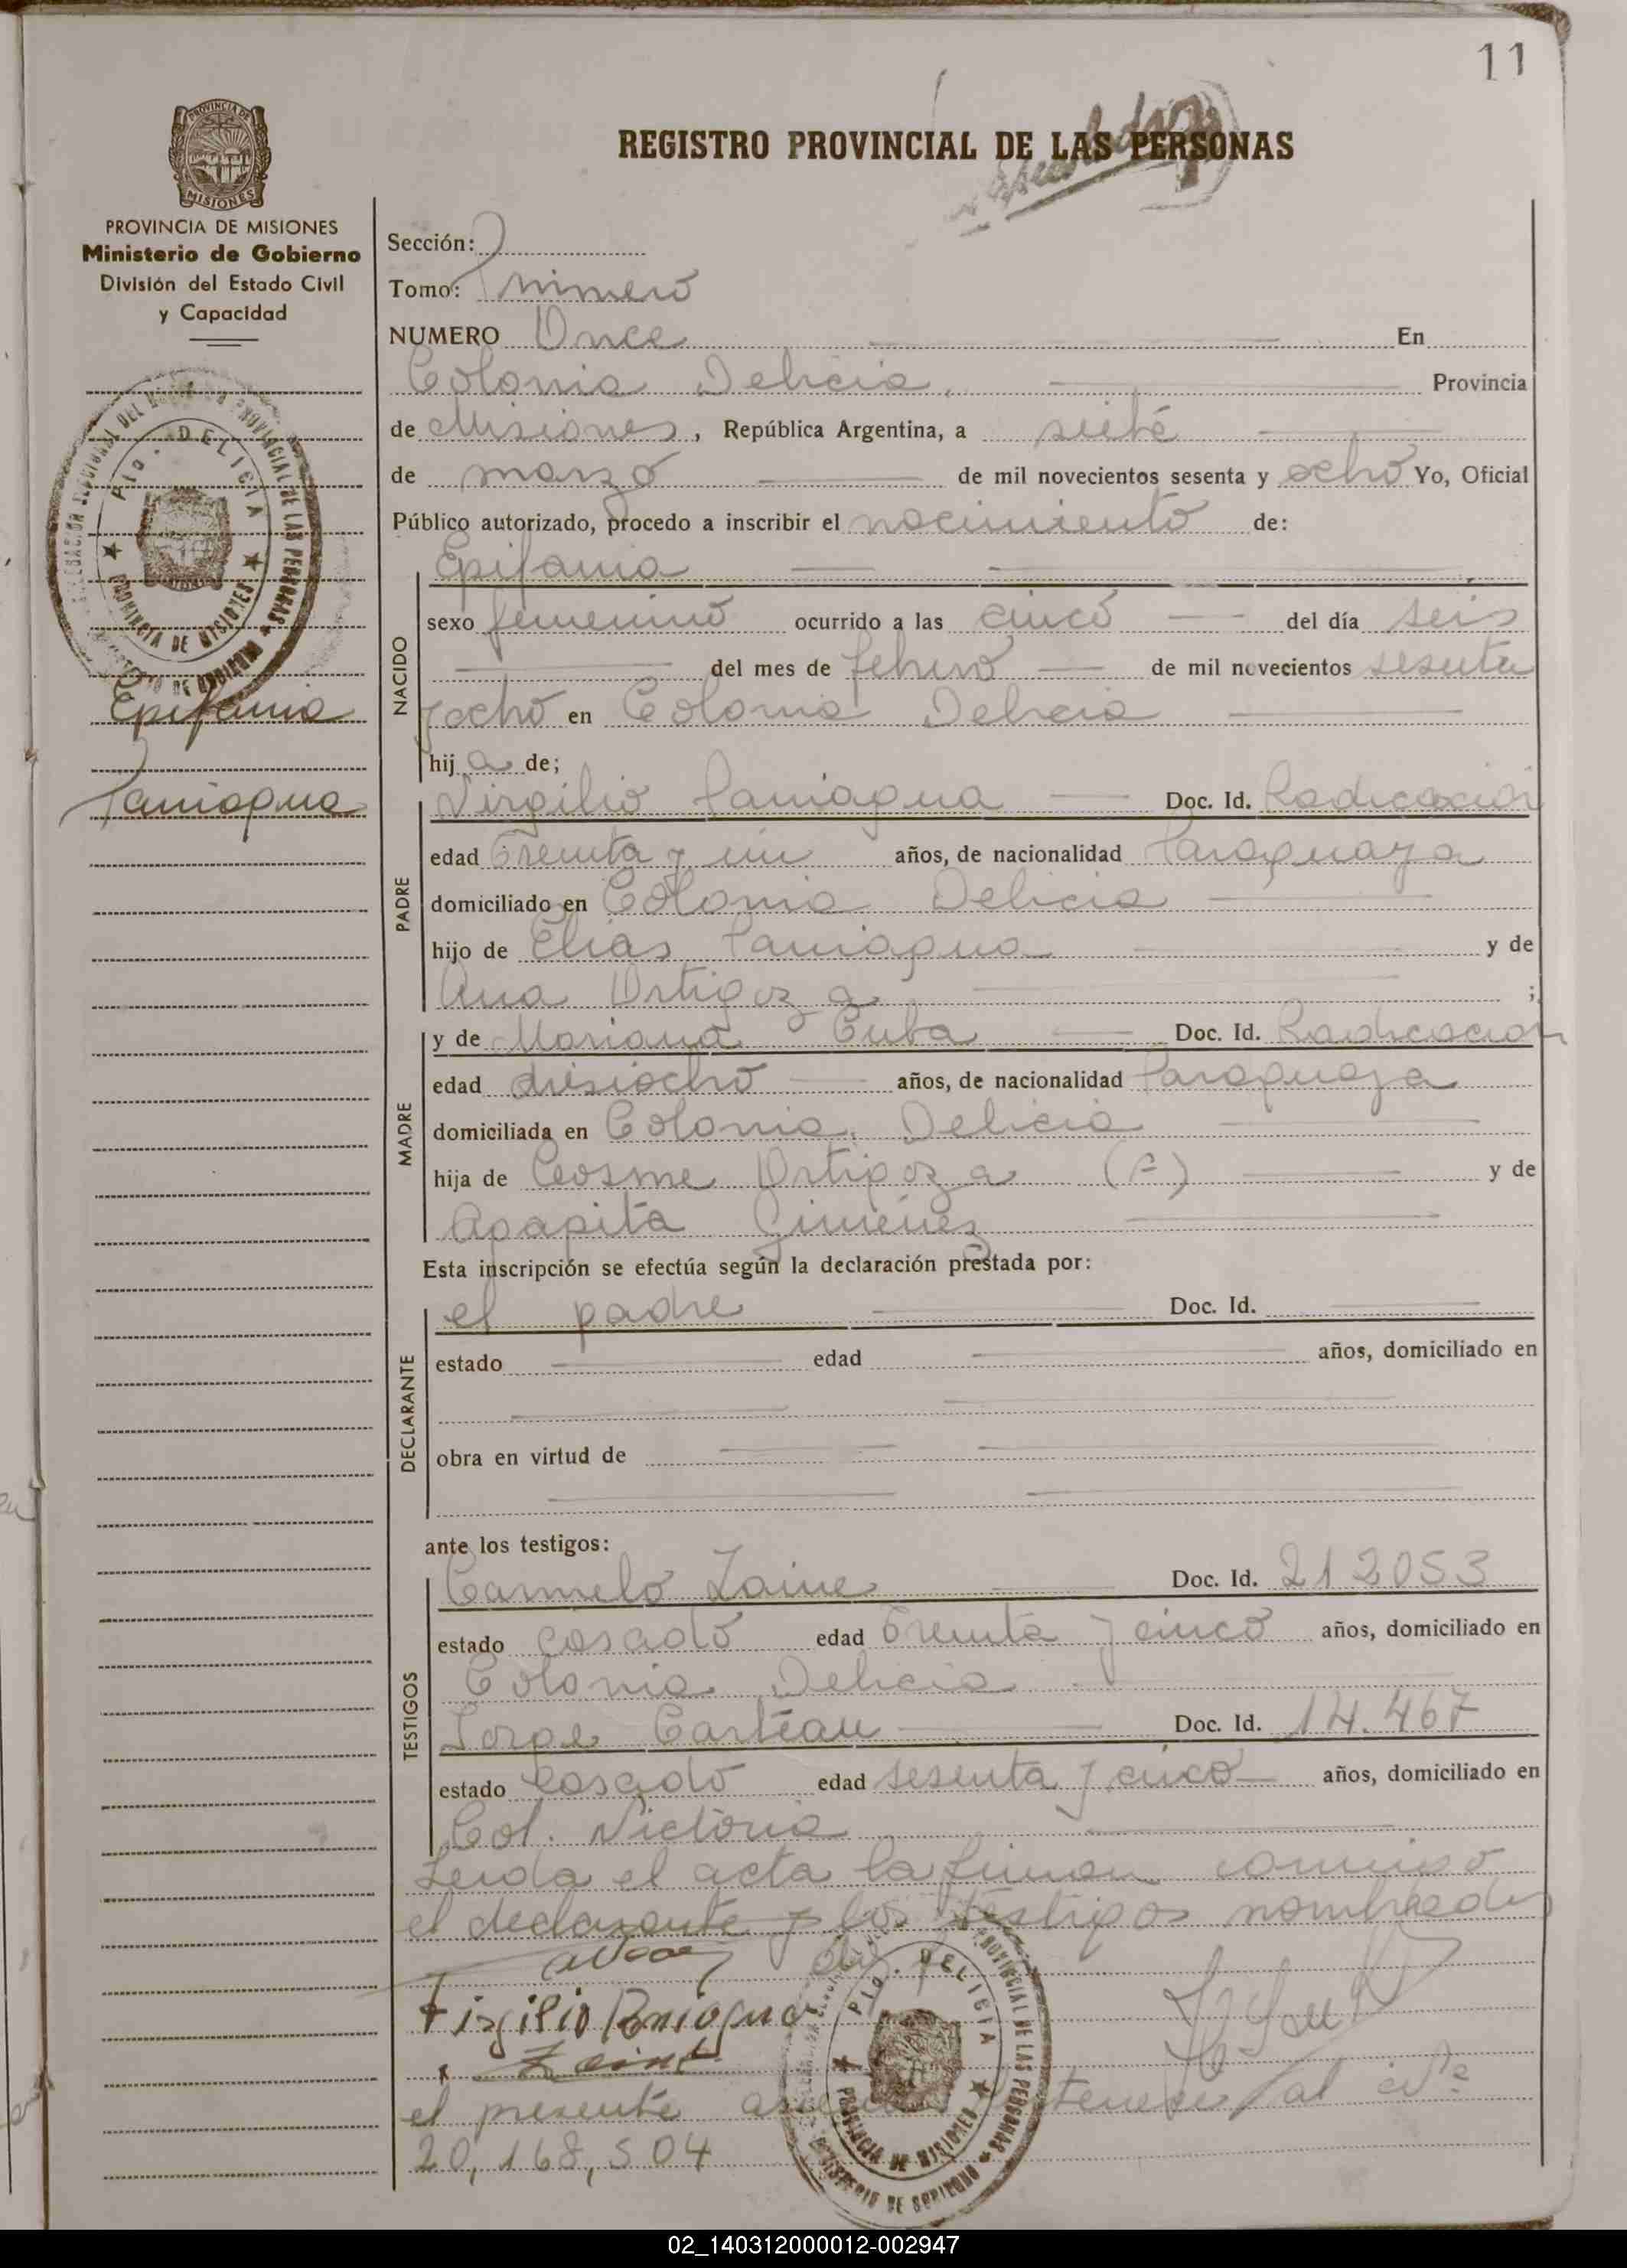 11
REGISTRO PROVINCIAL DE LAS PERSONAS
PROVINCIA DE MISIONES
Ministerio de Gobierno
División del Estado Civil
y Capacidad
Epifania
Paniagua
Sección:
Tomo: Primero
NUMERO Once En
Colonia Delicia, Provincia
de Misiones, República Argentina, a siete
de marzo de mil novecientos sesenta y ocho Yo, Oficial
Público autorizado, procedo a inscribir el nacimiento de:
Epifania
NACIDO
sexo femenino ocurrido a las cinco del día seis
del mes de febrero de mil novecientos sesenta
y ocho en Colonia Delicia
hija de;
PADRE
Virgilio Paniagua Doc. Id. Radicación
edad Treinta y un años, de nacionalidad Paraguaya
domiciliado en Colonia Delicia
hijo de Elias Paniagua y de
Ana Ortigoza ;
MADRE
y de Mariana Cuba Doc. Id. Radicacion
edad diesiocho años, de nacionalidad Paraguaya
domiciliada en Colonia Delicia
hija de Cosme Ortigoza (F) y de
Agapita Gimenez
Esta inscripción se efectúa según la declaración prestada por:
DECLARANTE
el padre Doc. Id.
estado edad años, domiciliado en
obra en virtud de
ante los testigos:
TESTIGOS
Carmelo Zaine Doc. Id. 212053
estado casado edad Treinta y cinco años, domiciliado en
Colonia Delicia
Jorge Carteau Doc. Id. 14.467
estado casado edad sesenta y cinco años, domiciliado en
Col. Victoria
Leida el acta la firman conmigo
el declarante y los testigos nombrados
Virgilio Paniagua
el presente al
20,168,504
PROVINCIAL DE LAS PERSONAS
Pto. DELICIA
PROVINCIA DE MISIONES
MINISTERIO DE GOBIERNO
02_140312000012-002947